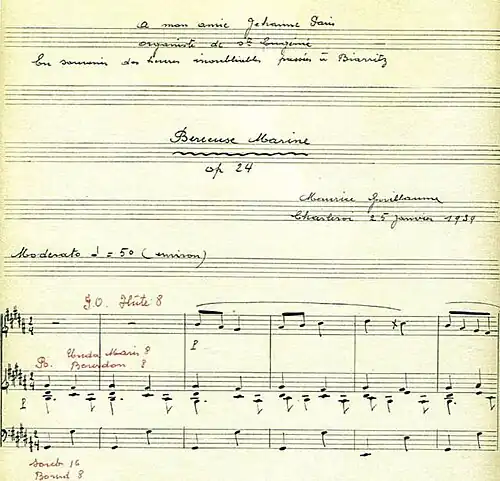 A mon amie Jehanne Paris
organiste de Ste Eugénie
En souvenir des heures inoubliables passées à Biarritz
Berceuse Marine
op 24
Maurice Guillaume
Charleroi 25 janvier 1938
Moderato ♩ = 50 (environ)
G.O. Flûte 8
P
Unda Maris 8
R. Bourdon 8
P
Soub 16
Bourd 8